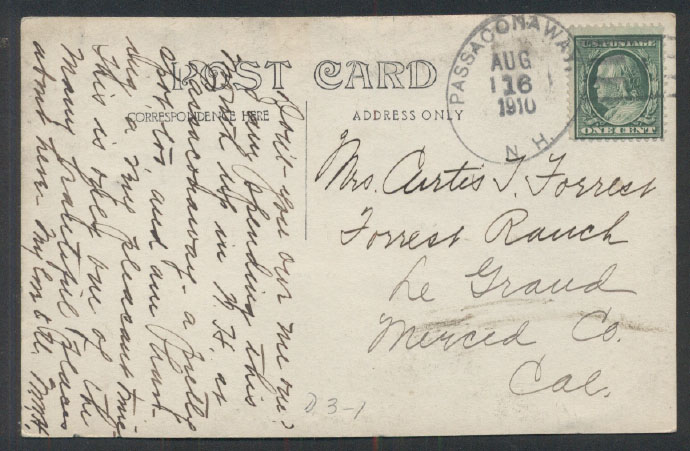 POST CARD
CORRESPONDENCE HERE
ADDRESS ONLY
PASSACONAWAY
AUG
16
1910
N.H.
U.S. POSTAGE
ONE CENT
Mrs. Curtis T. Forrest
Forrest Ranch
Le Grand
Merced Co.
Cal.
you our me one?
spending this
up in N.H. at
Passaconaway - a pretty
spot too and am hav-
ing a very pleasant time.
This is only one of the
many beautiful places
about here
D3-1